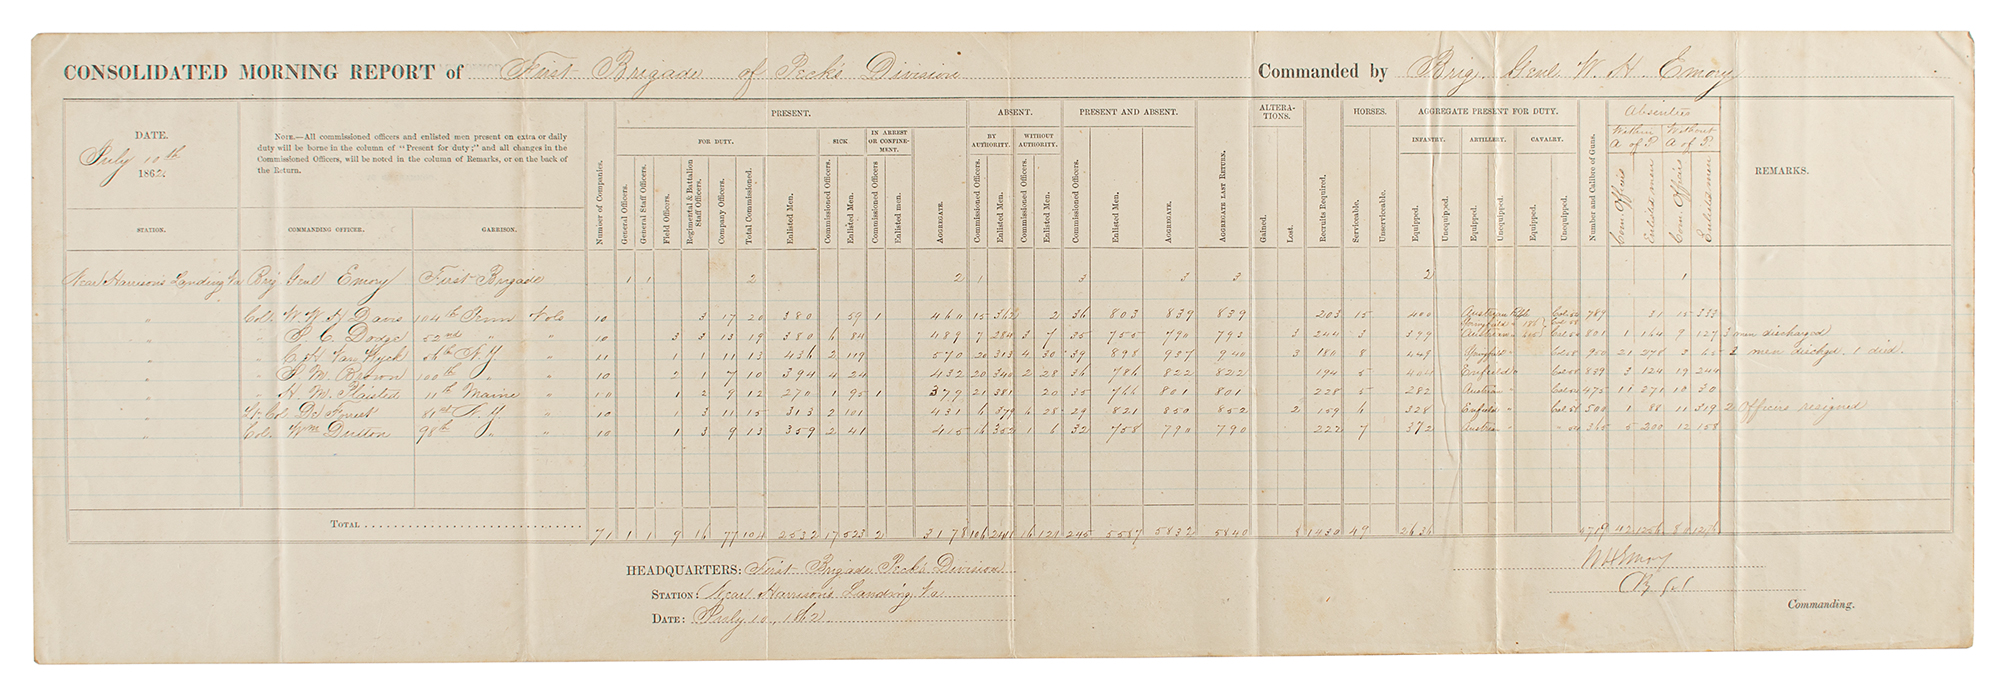 CONSOLIDATED MORNING REPORT of First Brigade of Peck's Division Commanded by Brig. Genl W. H. Emory
DATE.
July 10th
1862
NOTE.—All commissioned officers and enlisted men present on extra or daily
duty will be borne in the column of "Present for duty;" and all changes in the
Commissioned Officers, will be noted in the column of Remarks, or on the back of
the Return.
PRESENT. ABSENT. PRESENT AND ABSENT. ALTERA-TIONS. HORSES. AGGREGATE PRESENT FOR DUTY. Absentees
FOR DUTY. SICK IN ARREST OR CONFINE-MENT. BY AUTHORITY. WITHOUT AUTHORITY. INFANTRY. ARTILLERY. CAVALRY. Within A of P. Without A of P.
STATION. COMMANDING OFFICER. GARRISON. Number of Companies. General Officers. General Staff Officers. Field Officers. Regimental & Battalion Staff Officers. Company Officers. Total Commissioned. Enlisted Men. Commissioned Officers. Enlisted Men. Commissioned Officers Enlisted men. AGGREGATE. Commissioned Officers. Enlisted Men. Commissioned Officers. Enlisted Men. Commissioned Officers. Enlisted Men. AGGREGATE. AGGREGATE LAST RETURN. Gained. Lost. Recruits Required. Serviceable. Unserviceable. Equipped. Unequipped. Equipped. Unequipped. Equipped. Unequipped. Number and Calibre of Guns. Com. Officers Enlisted men Com. Officers Enlisted men REMARKS.
Near Harrison's Landing Va Brig Genl Emory First Brigade 1 1 2 2 1 3 3 3 2 1
" Col. W W H Davis 104th Penn Vols 10 3 17 20 380 59 1 460 15 362 2 36 803 839 839 203 15 400 Austrian Rifle Cal 54 789 31 15 333
" " J. C. Dodge 52nd " " 10 3 3 13 19 380 6 84 489 7 284 3 7 35 755 790 793 3 244 3 399 Austrian Cal 54 801 1 164 9 127 3 men discharged
" " C. H Van Wyck 56th N.Y. " 11 1 1 11 13 436 2 119 570 20 313 4 30 39 898 937 940 3 180 8 448 Springfield " Cal 58 950 21 278 3 65 2 men dischgd, 1 died.
" " J. M. Brown 100th " " 10 2 1 7 10 394 4 24 432 20 340 2 28 36 786 822 822 194 5 404 Enfield " Cal 58 839 3 124 19 244
" " H. M. Plaisted 11th Maine " 10 1 2 9 12 270 1 95 1 379 21 381 20 35 766 801 801 228 5 282 Austrian " Cal 54 475 11 271 10 30
" Lt. Col De Forest 81st N.Y. " 10 1 3 11 15 313 2 101 431 6 379 6 28 29 821 850 852 2 159 6 328 Enfield " Cal 58 500 1 88 11 319 2 Officers resigned
" Col. Wm Dutton 98th " " 10 1 3 9 13 359 2 41 415 16 352 1 6 32 758 790 790 222 7 372 Austrian " " 54 365 5 200 12 158
TOTAL 71 1 1 9 16 77 104 2532 17 523 2 3178 106 2411 16 121 245 5587 5832 5840 8 1430 49 2636 4719 42 1256 80 1276
HEADQUARTERS: First Brigade Peck's Division
STATION: Near Harrison's Landing Va.
DATE: July 10, 1862.
W H Emory
B. Gl
Commanding.